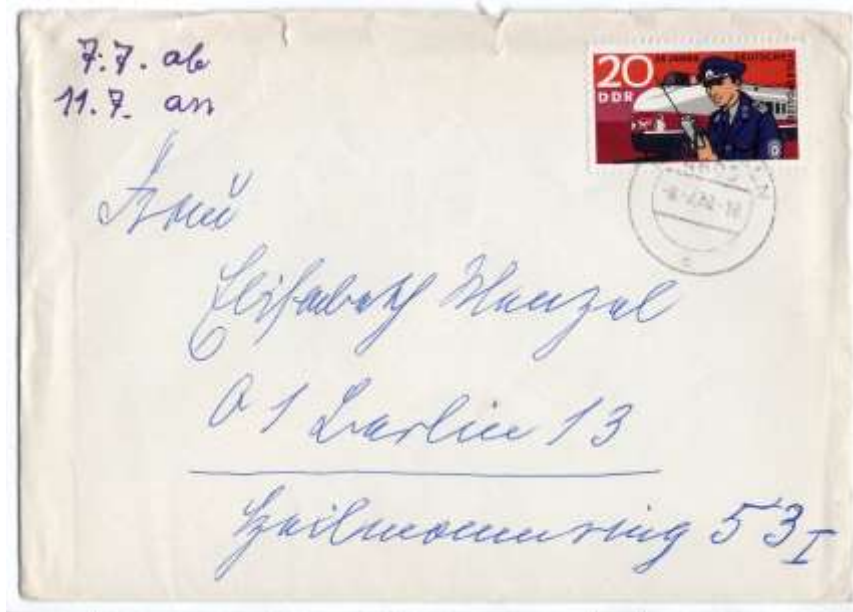 7.7. ab
11.7. an
20
DDR
25 JAHRE DEUTSCHE
VOLKSPOLIZEI
Frau
Elisabeth Menzel
01 Berlin 13
Heilmannring 53 I